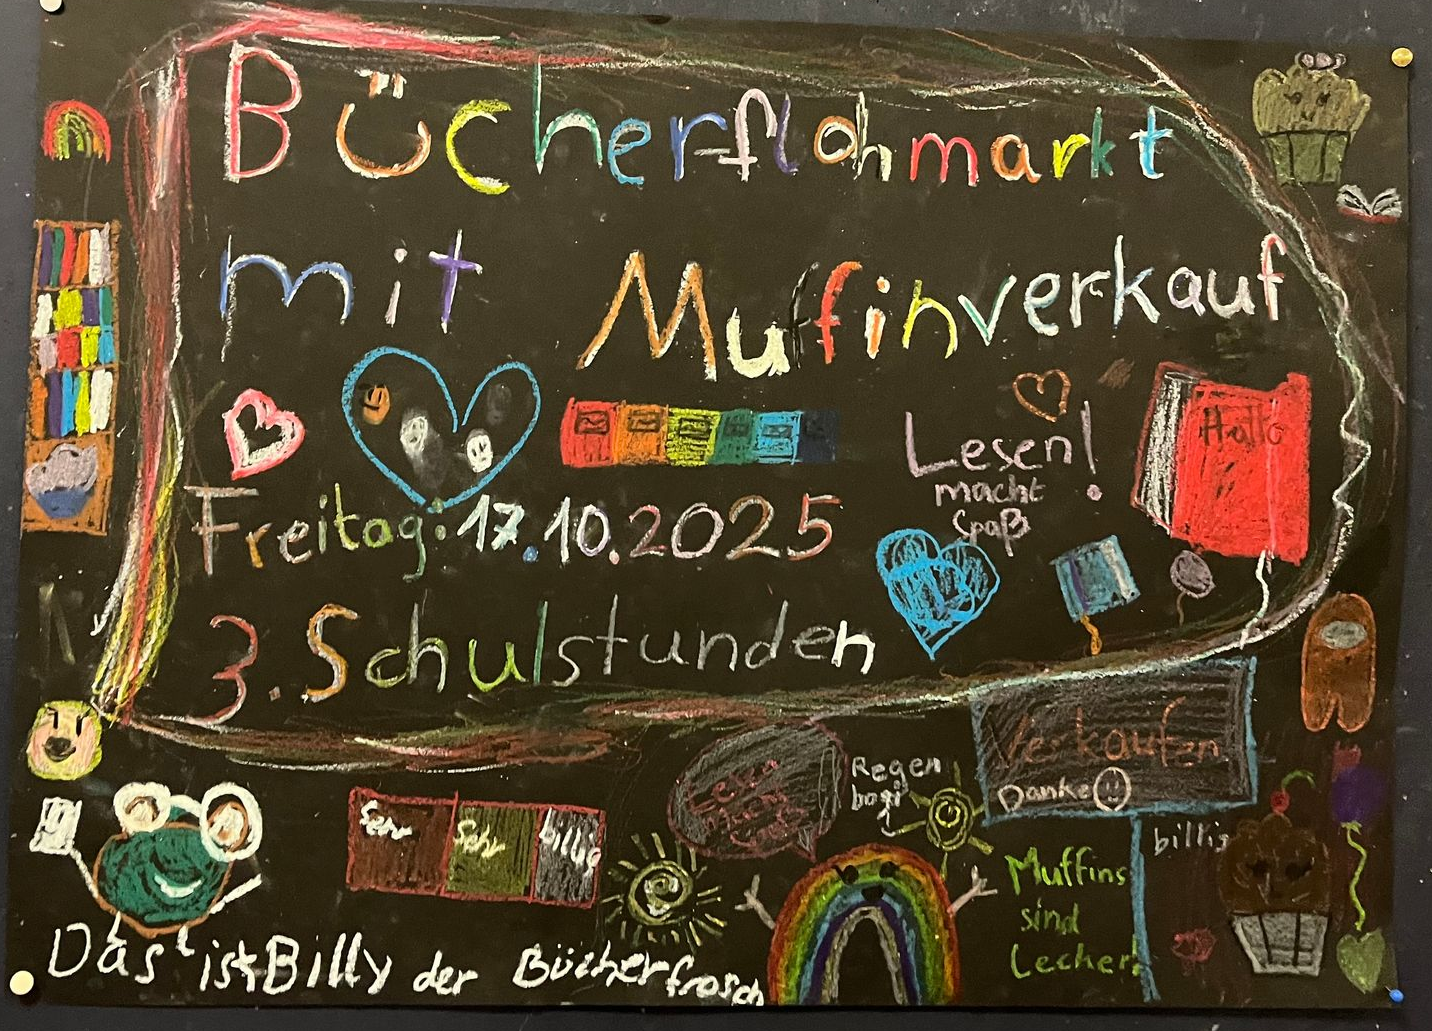 Bücherflohmarkt
mit Muffinverkauf
Lesen!
macht
Spaß
Hallo
Freitag: 17.10.2025
3. Schulstunden
Verkaufen
Danke
Regen
bogi
Sehr Sehr billig
billig
Muffins
sind
Lecker
Das ist Billy der Bücherfrosch